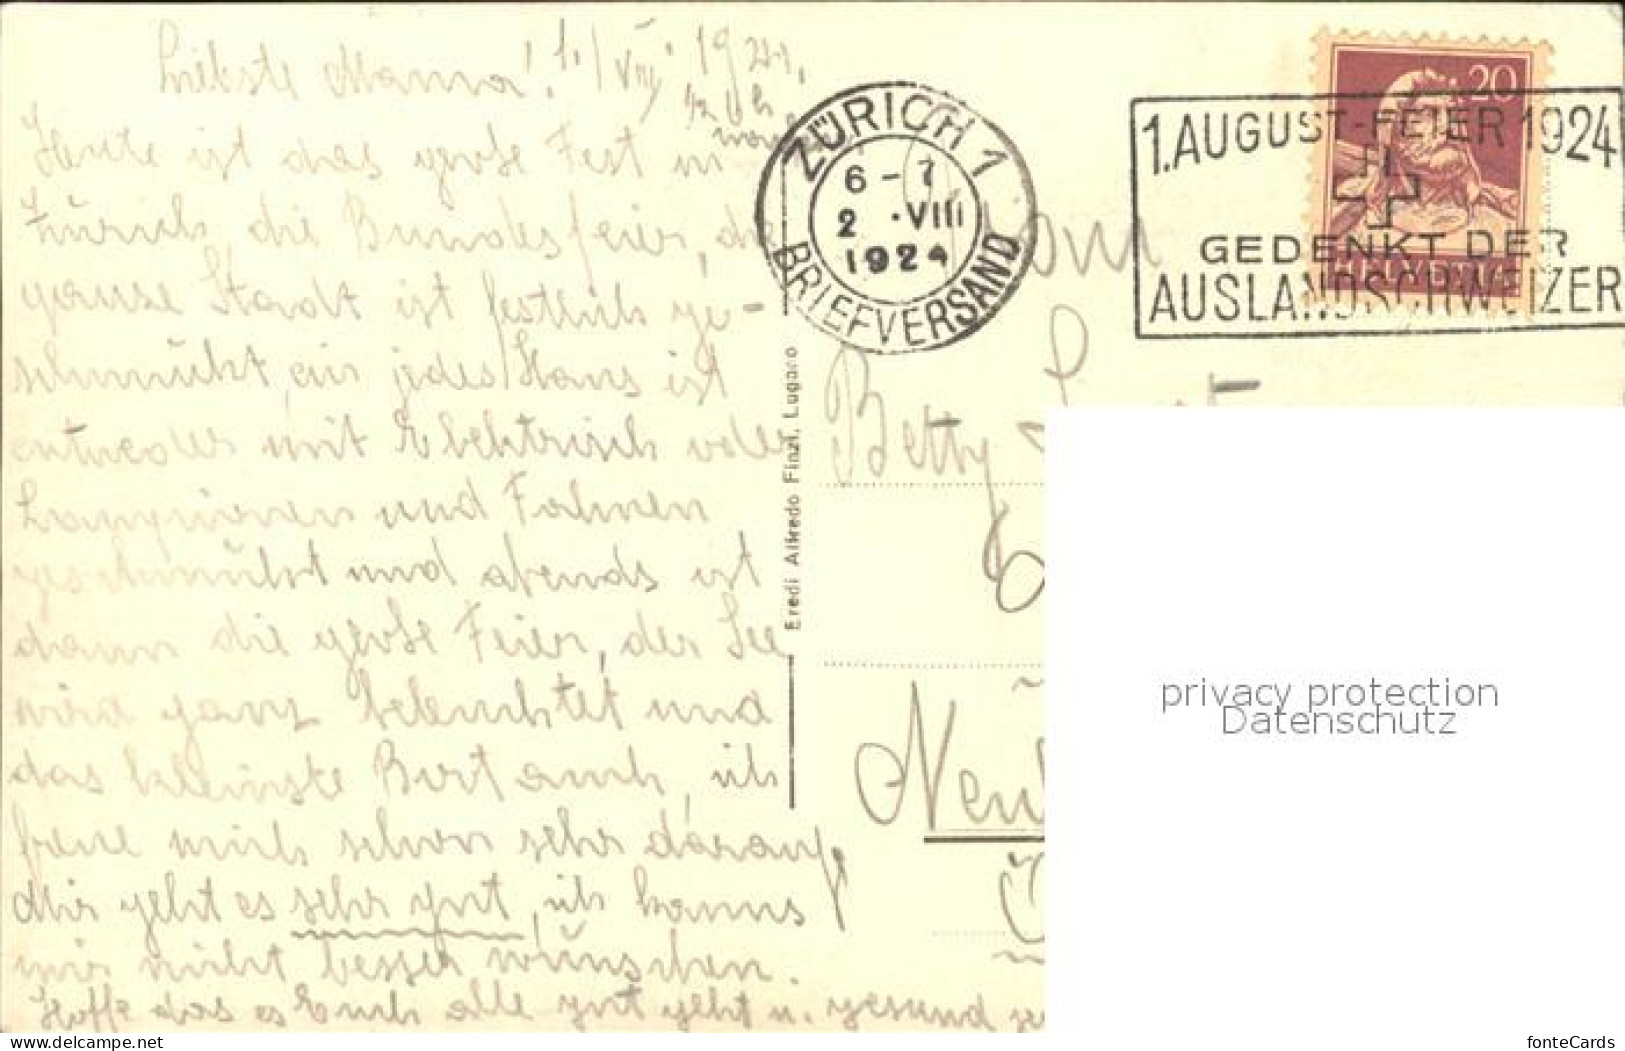 Liebste Mama! 1./VIII. 1924.
1/2 Uh
Heute ist das große Fest in
Zürich, die Bundesfeier, die
ganze Stadt ist festlich ge-
schmückt, ein jedes Haus ist
entweder mit Elektrisch oder
Lampionen und Fahnen
geschmückt und abends ist
dann die große Feier, der See
wird ganz beleuchtet und
das kleinste Boot auch, ich
freue mich schon sehr darauf
Mir geht es sehr gut, ich kanns
mir nicht besser wünschen.
Hoffe das es Euch alle gut geht u. gesund
ZÜRICH 1
6-7
2.VIII
1924
BRIEFVERSAND
1. AUGUST-FEIER 1924
GEDENKT DER
AUSLANDSCHWEIZER
20
HELVETIA
Eredi Alfredo Finzi, Lugano
Betty
Neu
privacy protection
Datenschutz
www.delcampe.net
fonteCards